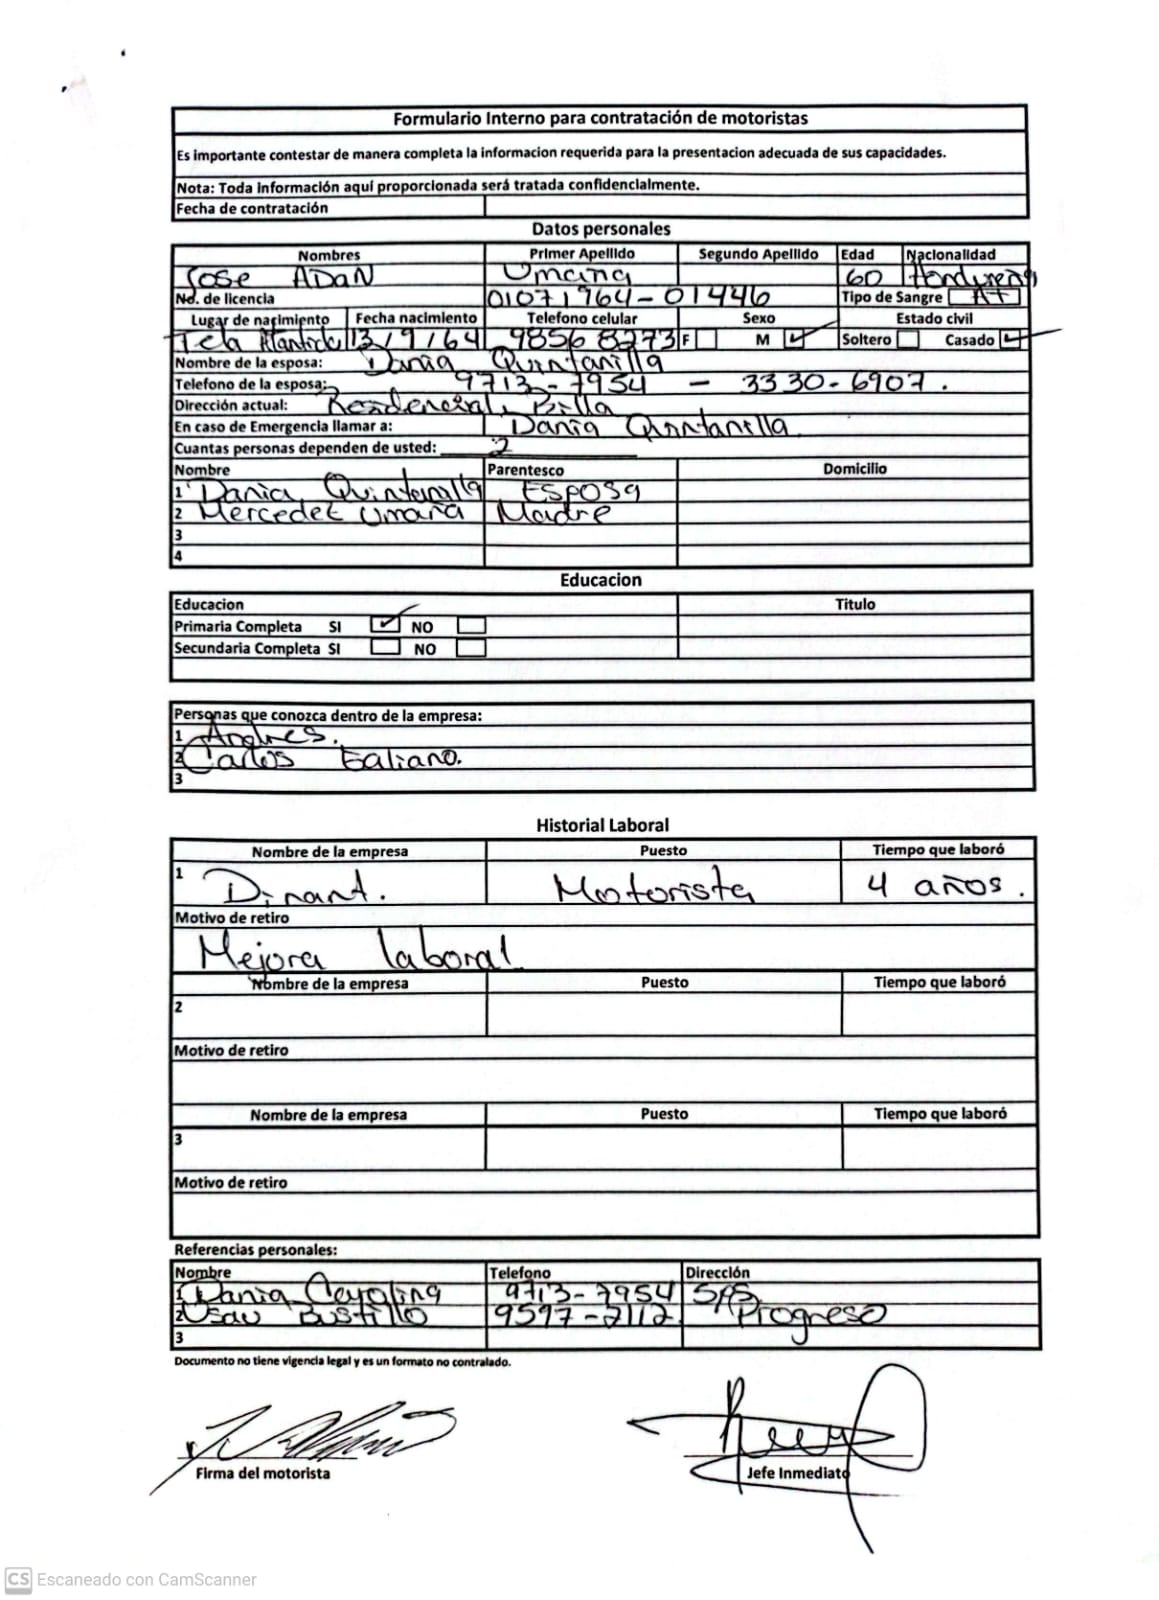 Formulario Interno para contratación de motoristas
Es importante contestar de manera completa la informacion requerida para la presentacion adecuada de sus capacidades.
Nota: Toda información aquí proporcionada será tratada confidencialmente.
Fecha de contratación
Datos personales
Nombres Primer Apellido Segundo Apellido Edad Nacionalidad
Jose ADaN Umaña 60 Hondureña
No. de licencia 01071964-01446 Tipo de Sangre A+
Lugar de nacimiento Fecha nacimiento Telefono celular Sexo Estado civil
Tela Atlantida 13/9/64 9856 8273 F M Soltero Casado
Nombre de la esposa: Dania Quintanilla
Telefono de la esposa: 9713-7954 - 3330-6907.
Dirección actual: Residencial
En caso de Emergencia llamar a: Dania Quintanilla
Cuantas personas dependen de usted: 2
Nombre Parentesco Domicilio
1 Dania Quintanilla Esposa
2 Mercedez Umaña Madre
3
4
Educacion
Educacion Titulo
Primaria Completa SI NO
Secundaria Completa SI NO
Personas que conozca dentro de la empresa:
1 Andres.
2 Carlos Galiano.
3
Historial Laboral
Nombre de la empresa Puesto Tiempo que laboró
1 Dinant. Motorista 4 años.
Motivo de retiro
Mejora laboral
Nombre de la empresa Puesto Tiempo que laboró
2
Motivo de retiro
Nombre de la empresa Puesto Tiempo que laboró
3
Motivo de retiro
Referencias personales:
Nombre Telefono Dirección
1 Dania 9713-7954 SPS
2 Bustillo 9597-2112 Progreso
3
Documento no tiene vigencia legal y es un formato no contralado.
Firma del motorista Jefe Inmediato
CS Escaneado con CamScanner